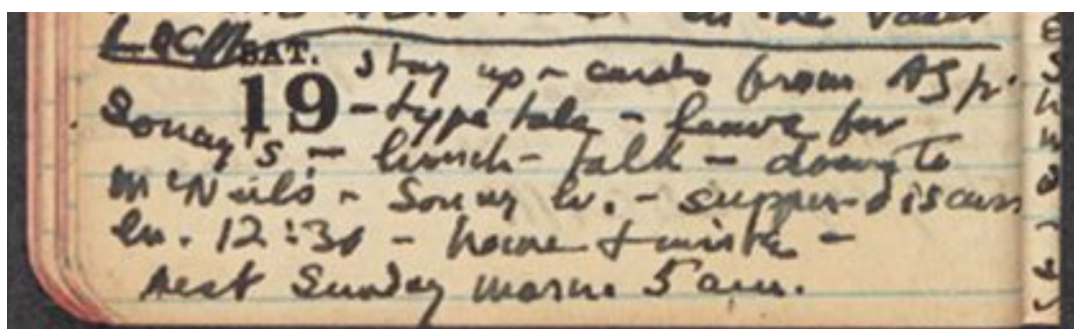 in the
SAT.
stay up - cards from
19 - type talk - leave for
Sonny's - lunch - talk - down to
McNeils - Sonny lv. - supper - discuss
lv. 12:30 - home + write -
rest Sunday morn. 5 am.